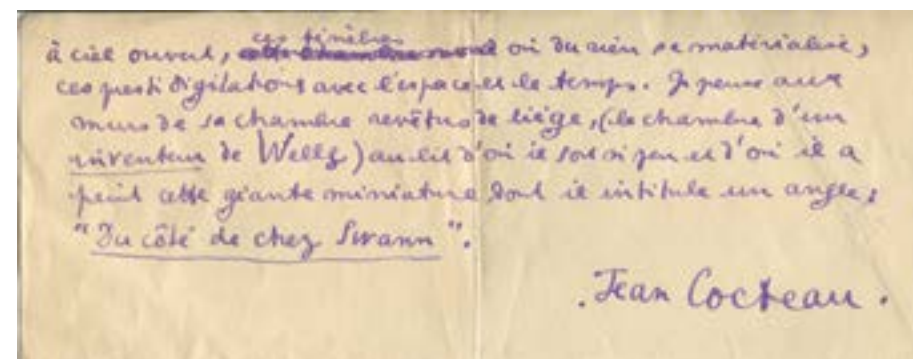 ces ténèbres
à ciel ouvert, où du rien se matérialise,
ces prestidigitations avec l'espace et le temps. Je pense aux
murs de sa chambre revêtus de liège, (la chambre d'un
inventeur de Wells) au lit d'où il sort si peu et d'où il a
peint cette géante miniature dont il intitule un angle :
"Du côté de chez Swann".
. Jean Cocteau .